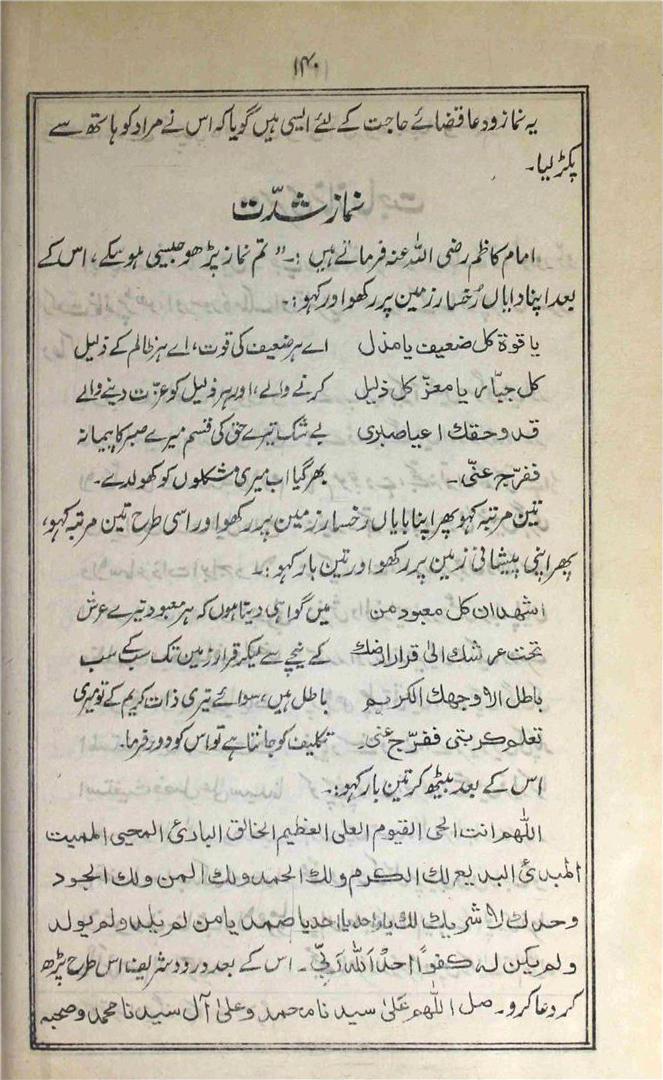 ۱۴۰
یہ نماز و دعا قضائے حاجت کے لئے ایسی ہیں گویا کہ اس نے مراد کو ہاتھ سے
پکڑ لیا۔
نماز شدّت
امام کاظم رضی اللہ عنہ فرماتے ہیں :۔ "تم نماز پڑھو جیسی ہو سکے، اس کے
بعد اپنا دایاں رُخسار زمین پر رکھو اور کہو :۔
یا قوة کل ضعیف یا مذل اے ہر ضعیف کی قوت، اے ہر ظالم کے ذلیل
کل جبّار یا معزّ کل ذلیل کرنے والے، اور ہر ذلیل کو عزّت دینے والے
قد وحقك اعیا صبری بے شک تیرے حق کی قسم میرے صبر کا پیمانہ
ففرّج عنّی۔ بھر گیا اب میری مشکلوں کو کھول دے۔
تین مرتبہ کہو پھر اپنا بایاں رخسار زمین پر رکھو اور اسی طرح تین مرتبہ کہو،
پھر اپنی پیشانی زمین پر رکھو اور تین بار کہو :۔
اشھد ان کل معبود من میں گواہی دیتا ہوں کہ ہر معبود تیرے عرش
تحت عرشك الیٰ قرار ارضك کے نیچے سے لیکر قرار زمین تک سب کے سب
باطل الا وجھك الکریم باطل ہیں، سوائے تیری ذات کریم کے تو میری
تعلم کربتی ففرّج عنّی۔ تکلیف کو جانتا ہے تو اس کو دور فرما۔
اس کے بعد بیٹھ کر تین بار کہو :۔
اللّٰھم انت الحی القیوم العلی العظیم الخالق الباریٔ المحیی الممیت
المبدیٔ البدیع لك الکرم ولك الحمد ولك المن ولك الجود
وحدك لا شریك لك یا واحد یا احد یا صمد یا من لم یلد ولم یولد
ولم یکن له کفوًا احد اللہ ربّی۔ اس کے بعد درود شریف اس طرح پڑھ
کر دعا کرو۔ صل اللّٰھم علیٰ سیدنا محمد وعلیٰ آل سیدنا محمد وصحبه